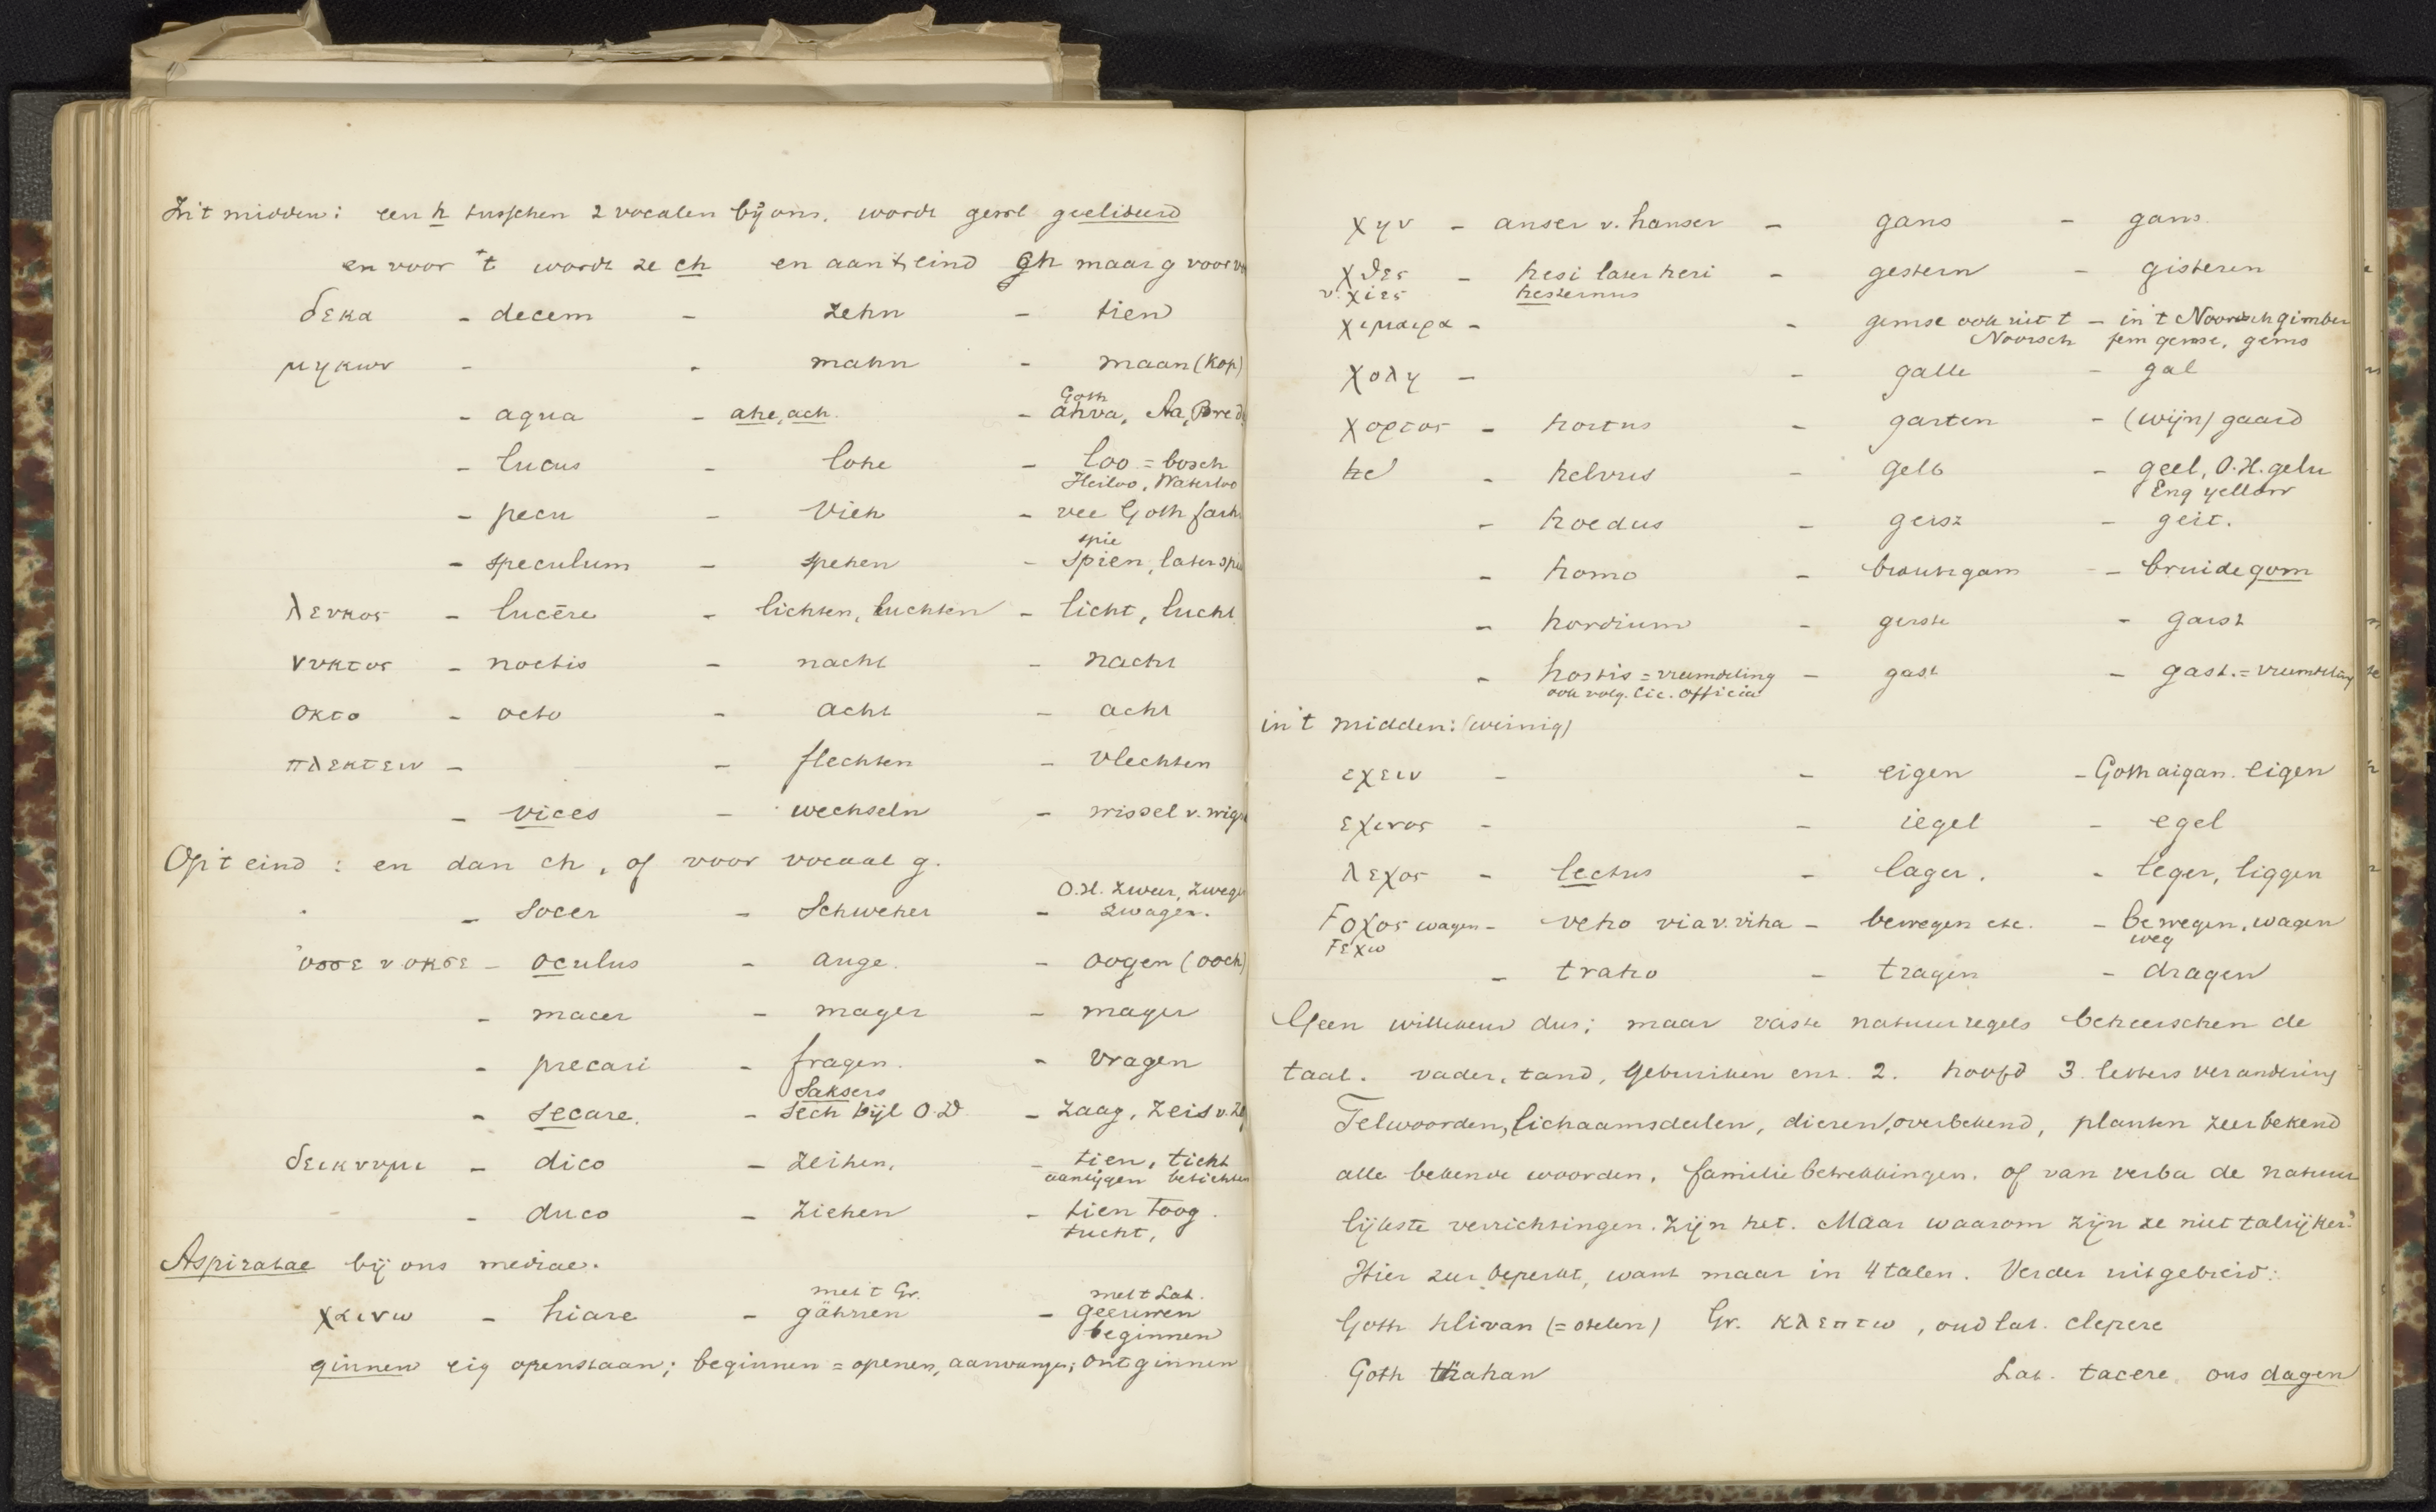 In 't midden: een h tusschen 2 vocalen bij ons, wordt geëlideerd
en voor 't wordt ze ch en aan 't eind gh maar g voor
δεκα - decem - zehn - tien
μηκων - - mahn - maan (kop)
Goth
- aqua - ahe, ach. - ahva, Aa, Bred
- lucus - lohe - loo = bosch
Heiloo, Waterloo
- pecu - Vieh - vee Goth faih
spie
- speculum - spehen - spien, later spie
λευκος - lucēre - lichten, luchten - licht, lucht
νυκτος - noctis - nacht - nacht
οκτο - octo - acht - acht
πλεκτειν - - flechten - vlechten
- vices - wechseln - wissel v. wig
Op 't eind: en dan ch, of voor vocaal g.
O.H. zweer, zweger
- socer - Schweher - zwager.
ὀσσε v οκσε - oculus - auge. - oogen (ooch)
- macer - mager - mager
- precari - fragen. - vragen
Saksers
- secare. - sech bijl O.D - zaag, zeis v.
δεικνυμι - dico - zeihen, - tien, ticht
aantijgen betichten
- duco - ziehen - tien toog.
tucht,
Aspiratae bij ons mediae.
met Gr. met Lat.
χαινω - hiare - gähnen - geeuwen
beginnen
ginnen eig openstaan; beginnen = openen, aanvangen; ontginnen
χην - anser v. hanser - gans - gans.
χθες - hesi later heri - gestern - gisteren
v. χιες hesternus
χιμαιρα - - gemse ook uit 't - in 't Noorsch gimber
Noorsch fem gemse, gems
χολη - - galle - gal
χορτος - hortus - garten - (wijn) gaard
he - helvus - gelb - geel, O.H. gelu
Eng yellow
- hoedus - geisz - geit.
- homo - brautigam - bruidegom
- hordium - gerste - garst
- hostis = vreemdeling - gast - gast. = vreemdeling
ook volg. Cic. Officia
in 't midden: (weinig)
εχειν - - eigen - Goth aigan. eigen
εχινος - - iegel - egel
λεχος - lectus - lager. - leger, liggen
Fοχος wagen - veho via v. viha - bewegen etc. - bewegen, wagen
Fεχω weg
- traho - tragen - dragen
Geen willekeur dus; maar vaste natuurregels beheerschen de
taal. vader, tand, gebruiken enz. 2. hoofd 3. letters verandering
Telwoorden, lichaamsdeelen, dieren, overbekend, planten zeer bekend
alle bekende woorden, familiebetrekkingen. of van verba de natuur
lijkste verrichtingen. zijn het. Maar waarom zijn ze niet talrijker?
Hier zeer beperkt, want maar in 4 talen. Verder uitgebreid:
Goth hlivan (= stelen) Gr. κλεπτω, oud lat. clepere
Goth thahan Lat. tacere, ons dagen